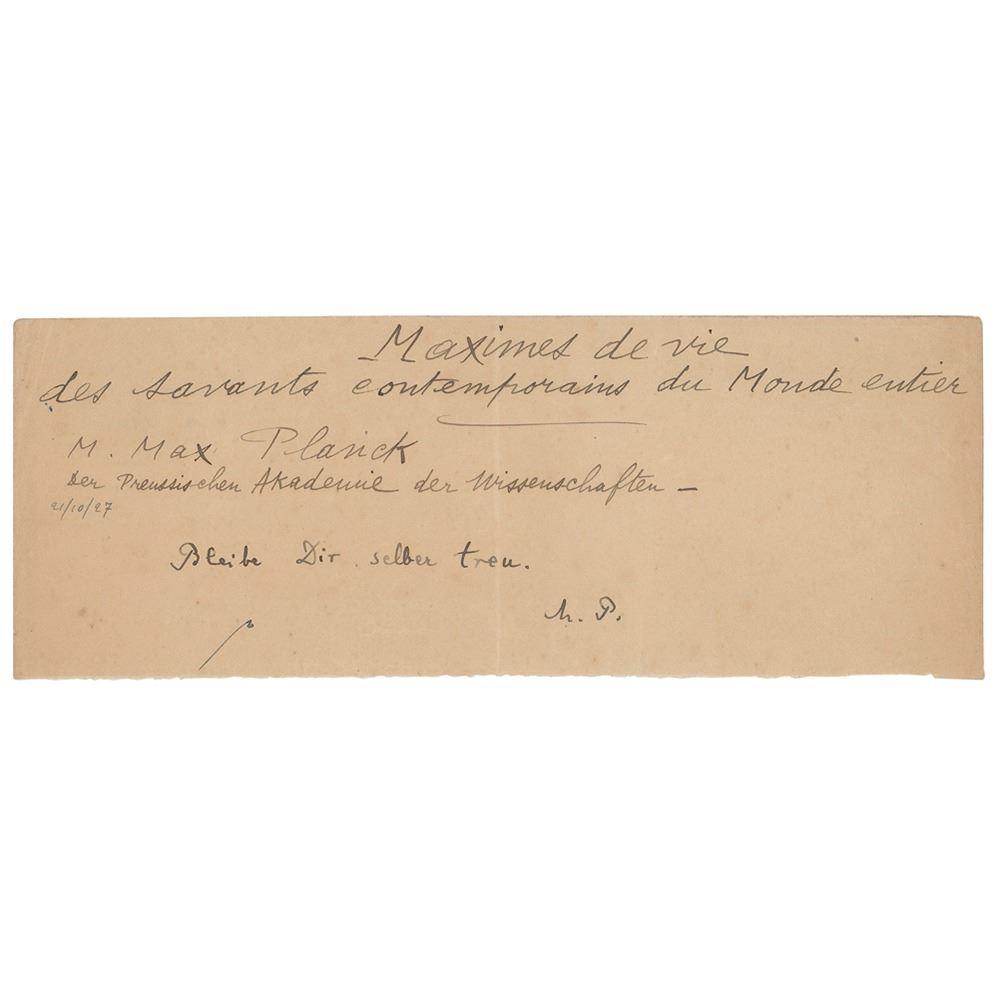 Maximes de vie
des savants contemporains du Monde entier
M. Max Planck
Der Preussischen Akademie der Wissenschaften –
21/10/27
Bleibe Dir selber treu.
M. P.